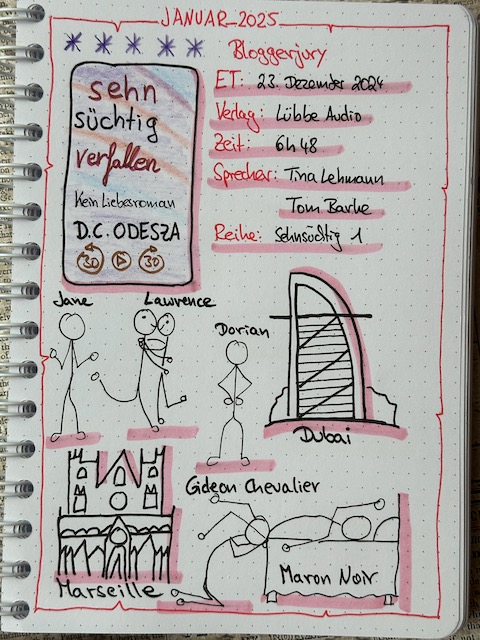 JANUAR 2025
Bloggerjury
sehn
süchtig
verfallen
Kein Liebesroman
D.C. ODESZA
30 30
ET: 23. Dezember 2024
Verlag: Lübbe Audio
Zeit: 6h 48
Sprecher: Tina Lehmann
Tom Barke
Reihe: Sehnsüchtig 1
Jane
Lawrence
Dorian
Dubai
Gideon Chevalier
Marseille
Maron Noir